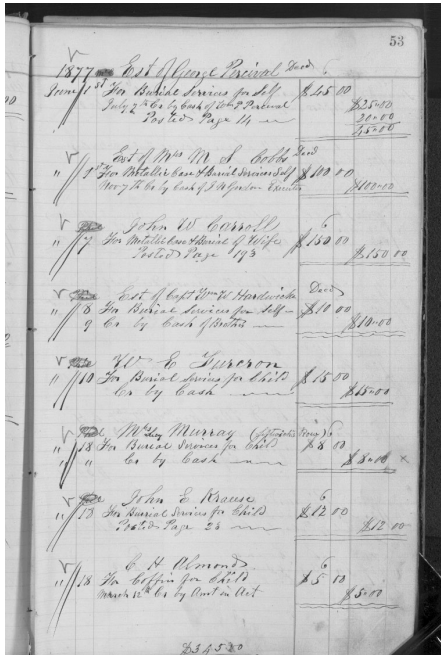 53
1877 Est of George Percival Decd 6
June 1st For Burial Services for Self $45 00
July 7th Cr by Cash of Wm P Percival $25-00
Posted Page 14 20-00
45-00
Est of Mrs M S Cobbs Decd
" 1st For Metallic Case & Burial Services Self $100 00
Nov 7th Cr by Cash of Gordon Executor $100-00
John W Carroll 6
" 7 For Metallic Case & Burial of Wife $150 00
Posted Page 193 $150.00
Est of Capt Wm W Hardwicke Decd
" 8 For Burial Services for Self $10 00
9 Cr by Cash of Brother $10-00
W E Furcron
" 10 For Burial Services for Child $15 00
Cr by Cash $15-00
Paid Mrs Murray 6
" 13 For Burial Services for Child $8 00
" " Cr by Cash $8-00
John E Krause 6
" 13 For Burial Services for Child $12 00
Posted Page 23 $12 00
C H Almond 6
" 18 For Coffin for Child $5 00
March 12th Cr by Amt in Act $5-00
$345 00